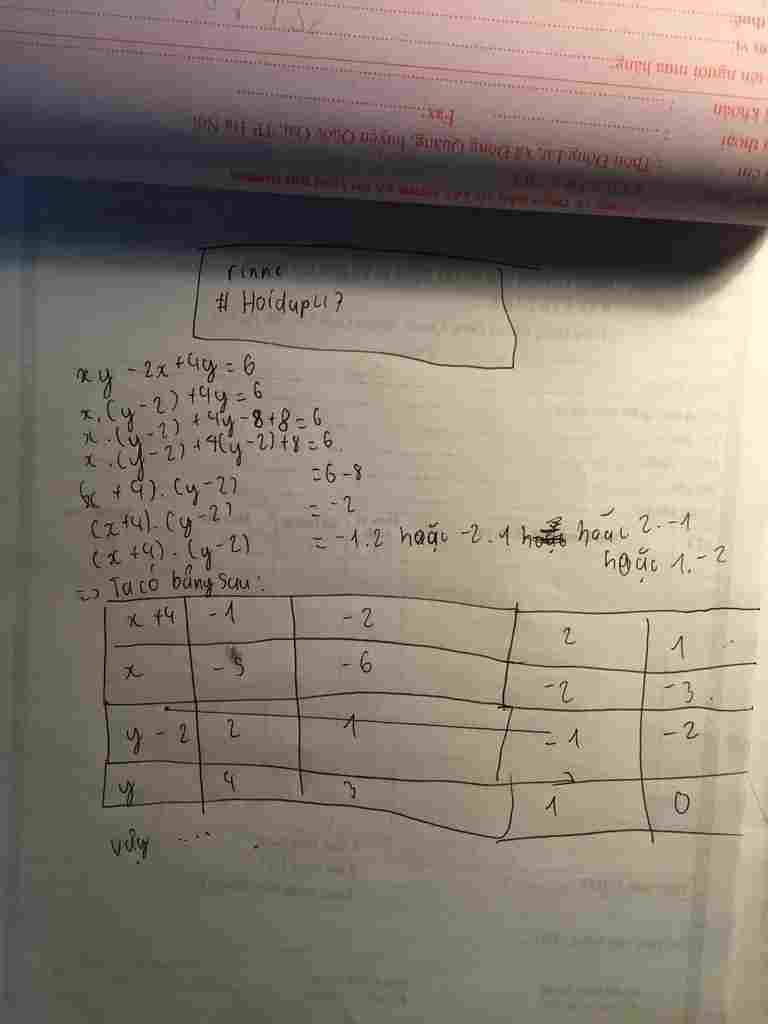 thuế:
ơn vị
tên người mua hàng:
khoản :
thoại : Fax:
chỉ : Thôn Đồng Lư, Xã Đồng Quang, huyện Quốc Oai, TP Hà Nội
rinne
# Hoidap247
xy - 2x + 4y = 6
x.(y-2) + 4y = 6
x.(y-2) + 4y - 8 + 8 = 6
x.(y-2) + 4(y-2) + 8 = 6.
(x + 4).(y-2) = 6-8
(x+4).(y-2) = -2
(x+4).(y-2) = -1.2 hoặc -2.1 hoặc 2.-1
hoặc 1.-2
=> Ta có bảng sau:
x+4 -1 -2 2 1
x -5 -6 -2 -3.
y - 2 2 1 -1 -2
y 4 3 1 0
vậy ....